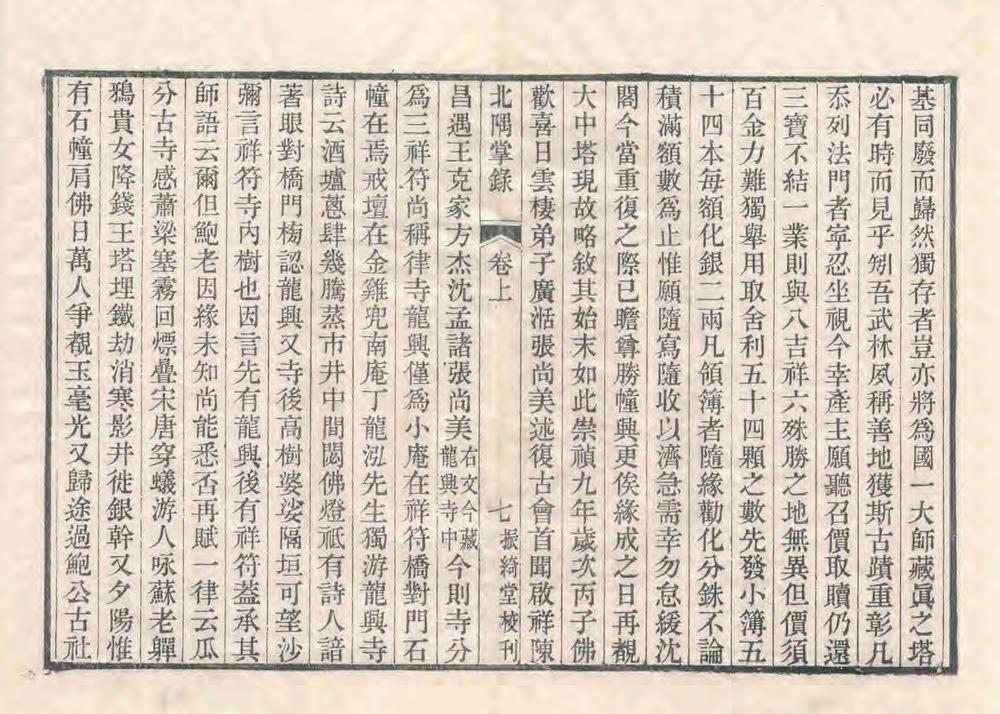 基同廢而巋然獨存者豈亦將爲國一大師藏眞之塔
必有時而見乎矧吾武林夙稱善地獲斯古蹟重彰凡
忝列法門者寧忍坐視今幸產主願聽召價取贖仍還
三寶不結一業則與八吉祥六殊勝之地無異但價須
百金力難獨舉用取舍利五十四顆之數先發小簿五
十四本每額化銀二兩凡領簿者隨緣勸化分銖不論
積滿額數爲止惟願隨寫隨收以濟急需幸勿怠緩沈
閣今當重復之際已瞻尊勝幢興更俟緣成之日再覩
大中塔現故略敘其始末如此崇禎九年歲次丙子佛
歡喜日雲棲弟子廣湉張尚美述復古會首聞啟祥陳
北隅掌錄 卷上 七 振綺堂校刊
昌遇王克家方杰沈孟諸張尚美右文今藏龍興寺中今則寺分
爲三祥符尚稱律寺龍興僅爲小庵在祥符橋對門石
幢在焉戒壇在金雞兜南庵丁龍泓先生獨游龍興寺
詩云酒壚蔥肆幾騰蒸市井中間閟佛燈祗有詩人諳
著眼對橋門㮄認龍興又寺後高樹婆娑隔垣可望沙
彌言祥符寺內樹也因言先有龍興後有祥符蓋承其
師語云爾但鮑老因緣未知尚能悉否再賦一律云瓜
分古寺感蕭梁塞霧回熛疊宋唐穿蟻游人咏蘇老躶
鴉貴女降錢王塔埋鐵劫消寒影井徙銀幹又夕陽惟
有石幢肩佛日萬人爭覩玉毫光又歸途過鮑公古社